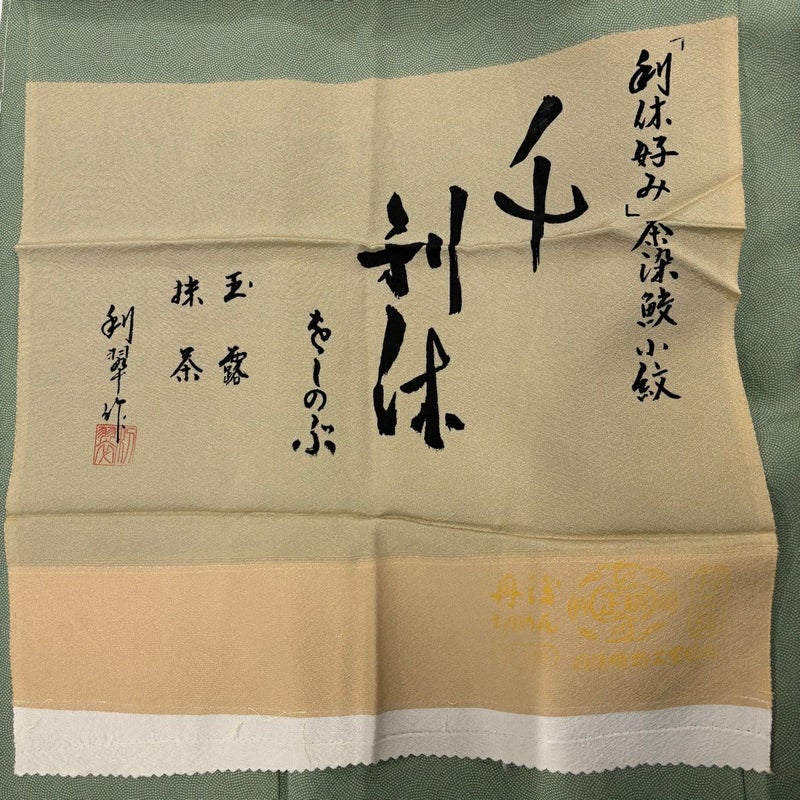 「利休好み」茶染鮫小紋
千利休
をしのぶ
玉露
抹茶
利翠作